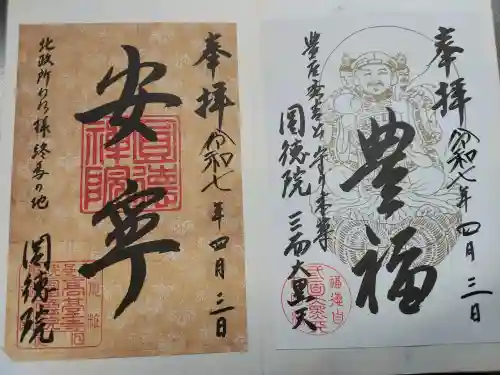 奉拝
令和七年四月三日
安寧
圓徳院
北政所ねね様終焉の地
圓徳院
奉拝
令和七年四月三日
豊福
豊臣秀吉公守り本尊
三面大黒天
圓徳院